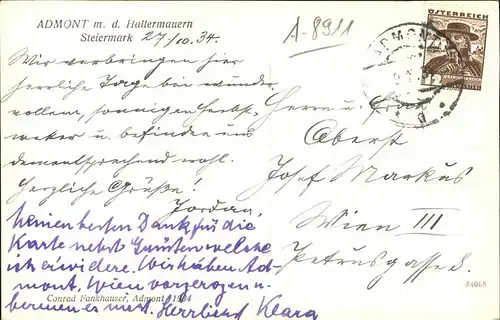 ADMONT m. d. Hallermauern
Steiermark 27/10.34.
A-8911
Wir verbringen hier
herrliche Tage bei wunder
vollem, sonnigen Herbst-
wetter u. befinden uns
dementsprechend wohl.
Herzliche Grüße!
Jordan.
Meinen besten Dank für die
Karte nebst Grüßen welche
ich erwidere. Wir haben Ad-
mont, Wien vorgezogen u.
es nicht. Herzlichst Klara
Conrad Fankhauser, Admont 1934
ÖSTERREICH
12
ADMONT
Herrn u. Frau
Oberst
Josef Markus
Wien III
Petrusgasse 8.